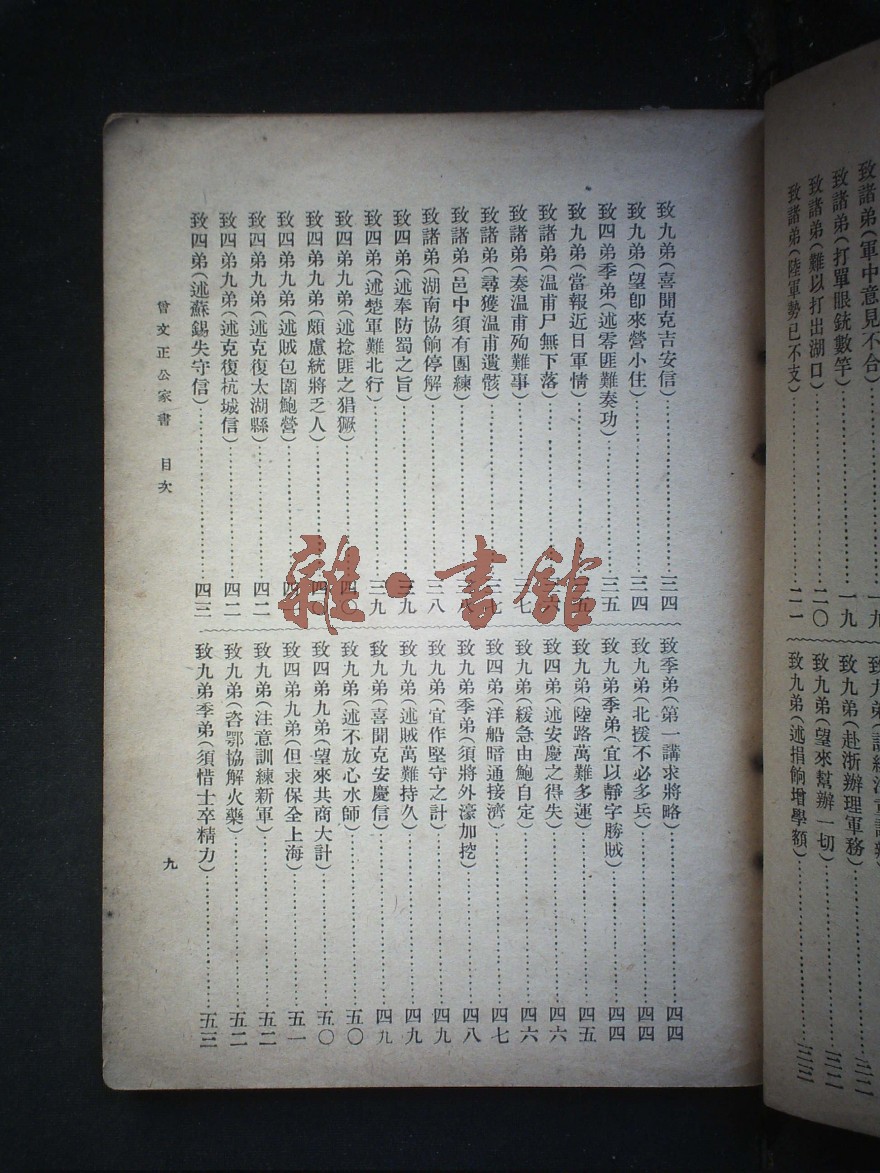 致諸弟(軍中意見不合)…………一九
致諸弟(打單眼銃數竿)…………一九
致諸弟(難以打出湖口)…………二〇
致諸弟(陸軍勢已不支)…………二一
致九弟(赴浙辦理軍務)…………三二
致九弟(望來幫辦一切)…………三二
致九弟(述捐餉增學額)…………三三
致九弟(喜聞克吉安信)…………三四
致九弟(望卽來營小住)…………三四
致四弟季弟(述零匪難奏功)…………三五
致九弟(當報近日軍情)…………五
致諸弟(溫甫尸無下落)…………六
致諸弟(奏溫甫殉難事)…………七
致諸弟(尋獲溫甫遺骸)…………七
致諸弟(邑中須有團練)…………八
致諸弟(湖南協餉停解)…………三八
致四弟(述奉防蜀之旨)…………九
致四弟(述楚軍難北行)…………三九
致四弟九弟(述捻匪之猖獗)…………四〇
致四弟九弟(頗慮統將乏人)…………四
致四弟九弟(述賊包圍鮑營)…………四一
致四弟九弟(述克復太湖縣)…………四二
致四弟九弟(述克復杭城信)…………四二
致四弟(述蘇錫失守信)…………四三
致季弟(第一講求將略)…………四四
致九弟(北援不必多兵)…………四四
致九弟季弟(宜以靜字勝賊)…………四四
致九弟(陸路萬難多運)…………四五
致四弟(述安慶之得失)…………四六
致九弟(緩急由鮑自定)…………四六
致四弟(洋船暗通接濟)…………四七
致九弟季弟(須將外濠加挖)…………四八
致九弟(宜作堅守之計)…………四九
致九弟(述賊萬難持久)…………四九
致九弟(喜聞克安慶信)…………四九
致九弟(述不放心水師)…………五〇
致四弟九弟(望來共商大計)…………五〇
致四弟九弟(但求保全上海)…………五一
致九弟(注意訓練新軍)…………五二
致九弟(咨鄂協解火藥)…………五二
致九弟季弟(須惜士卒精力)…………五三
曾文正公家書 目次
九
雜·書館